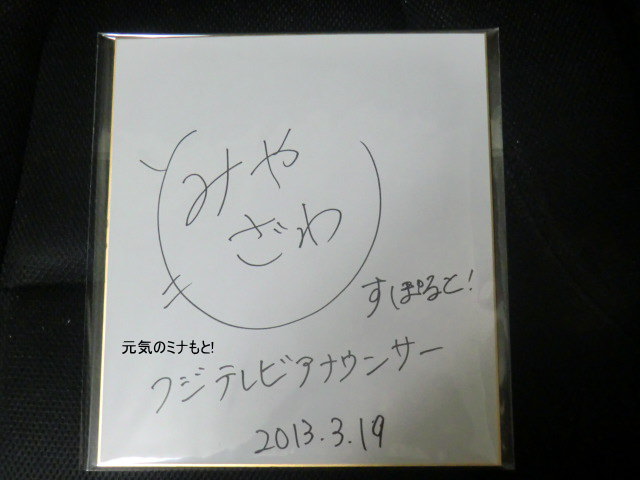 みや
ざわ
すぽると!
元気のミナもと!
フジテレビアナウンサー
2013.3.19